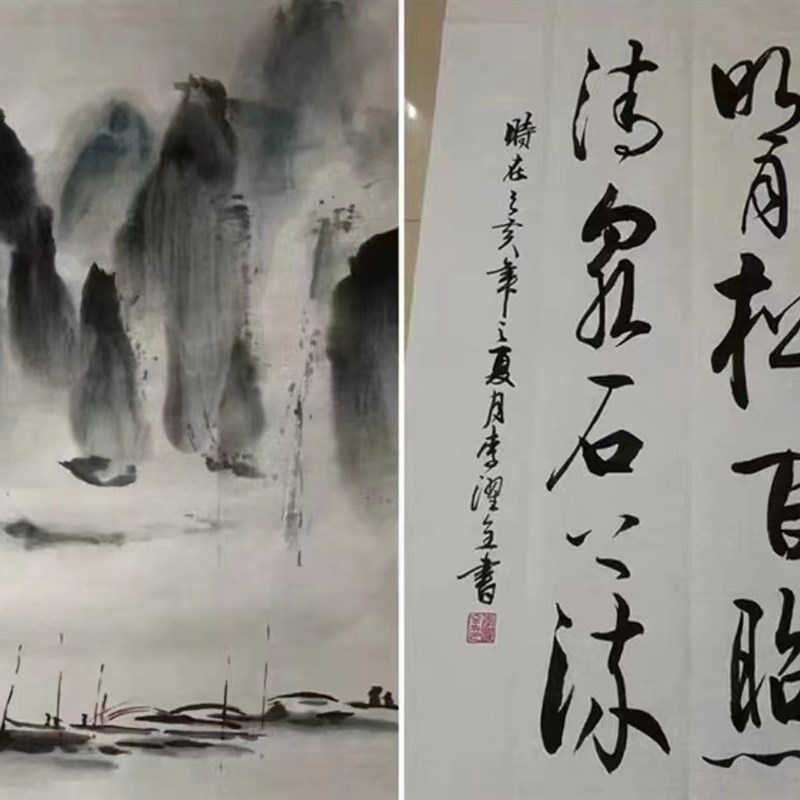 明月松間照
清泉石上流
時在己亥年之夏月李濯書